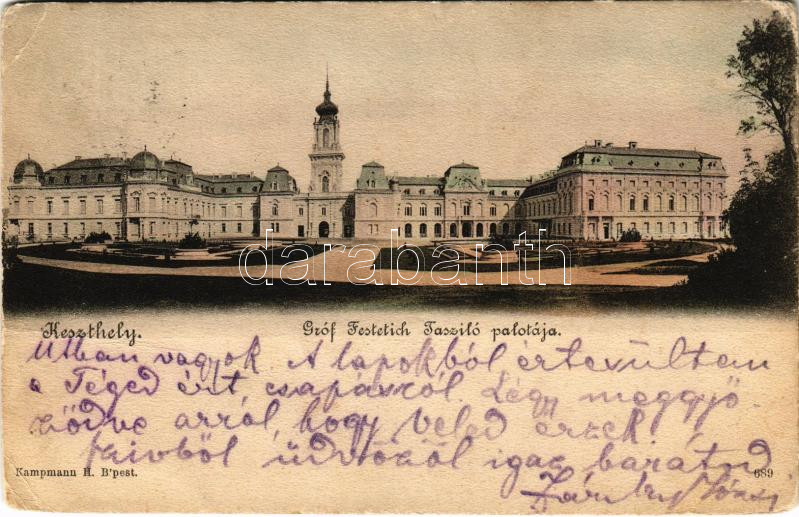 darabanth
Keszthely. Gróf Festetich Tasziló palotája.
Utban vagyok A lapokból értesültem
a Téged ért csapásról. Légy meggyő-
ződve arról, hogy veled érzek
szivből üdvözöl igaz barátod
Kampmann H. B'pest. 689